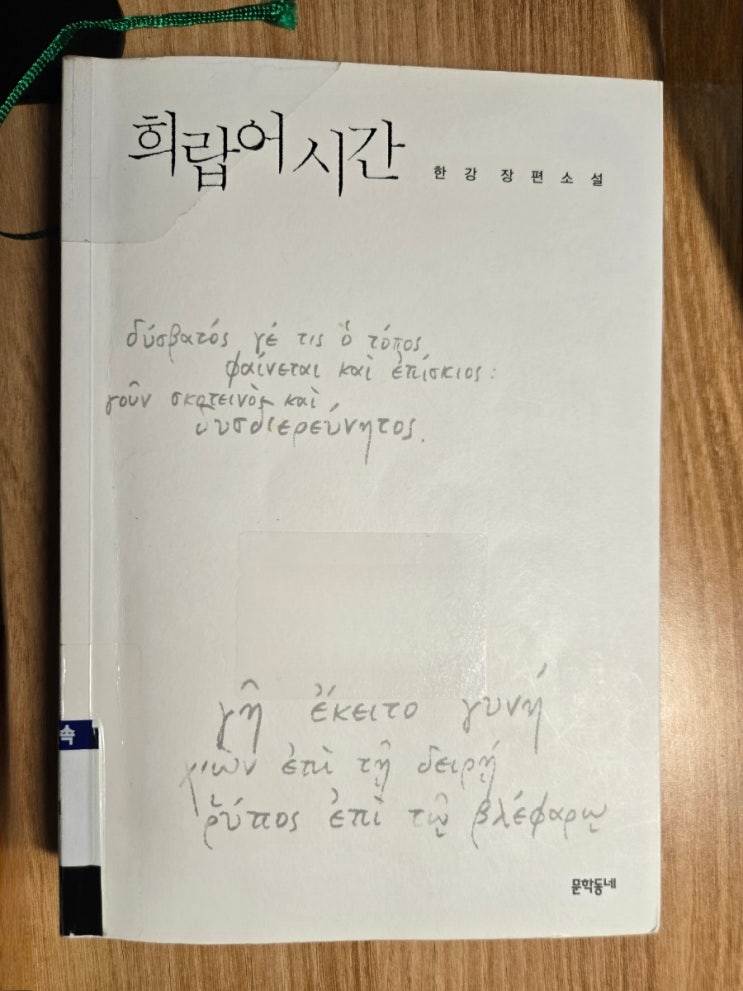 희랍어 시간
한강 장편소설
δύσβατός γέ τις ὁ τόπος
φαίνεται καὶ ἐπίσκιος:
γοῦν σκοτεινὸς καὶ
δυσδιερεύνητος.
γῆ ἔκειτο γυνή
χιὼν ἐπὶ τῇ δειρῇ
ῥύπος ἐπὶ τῷ βλέφαρῳ
문학동네
속